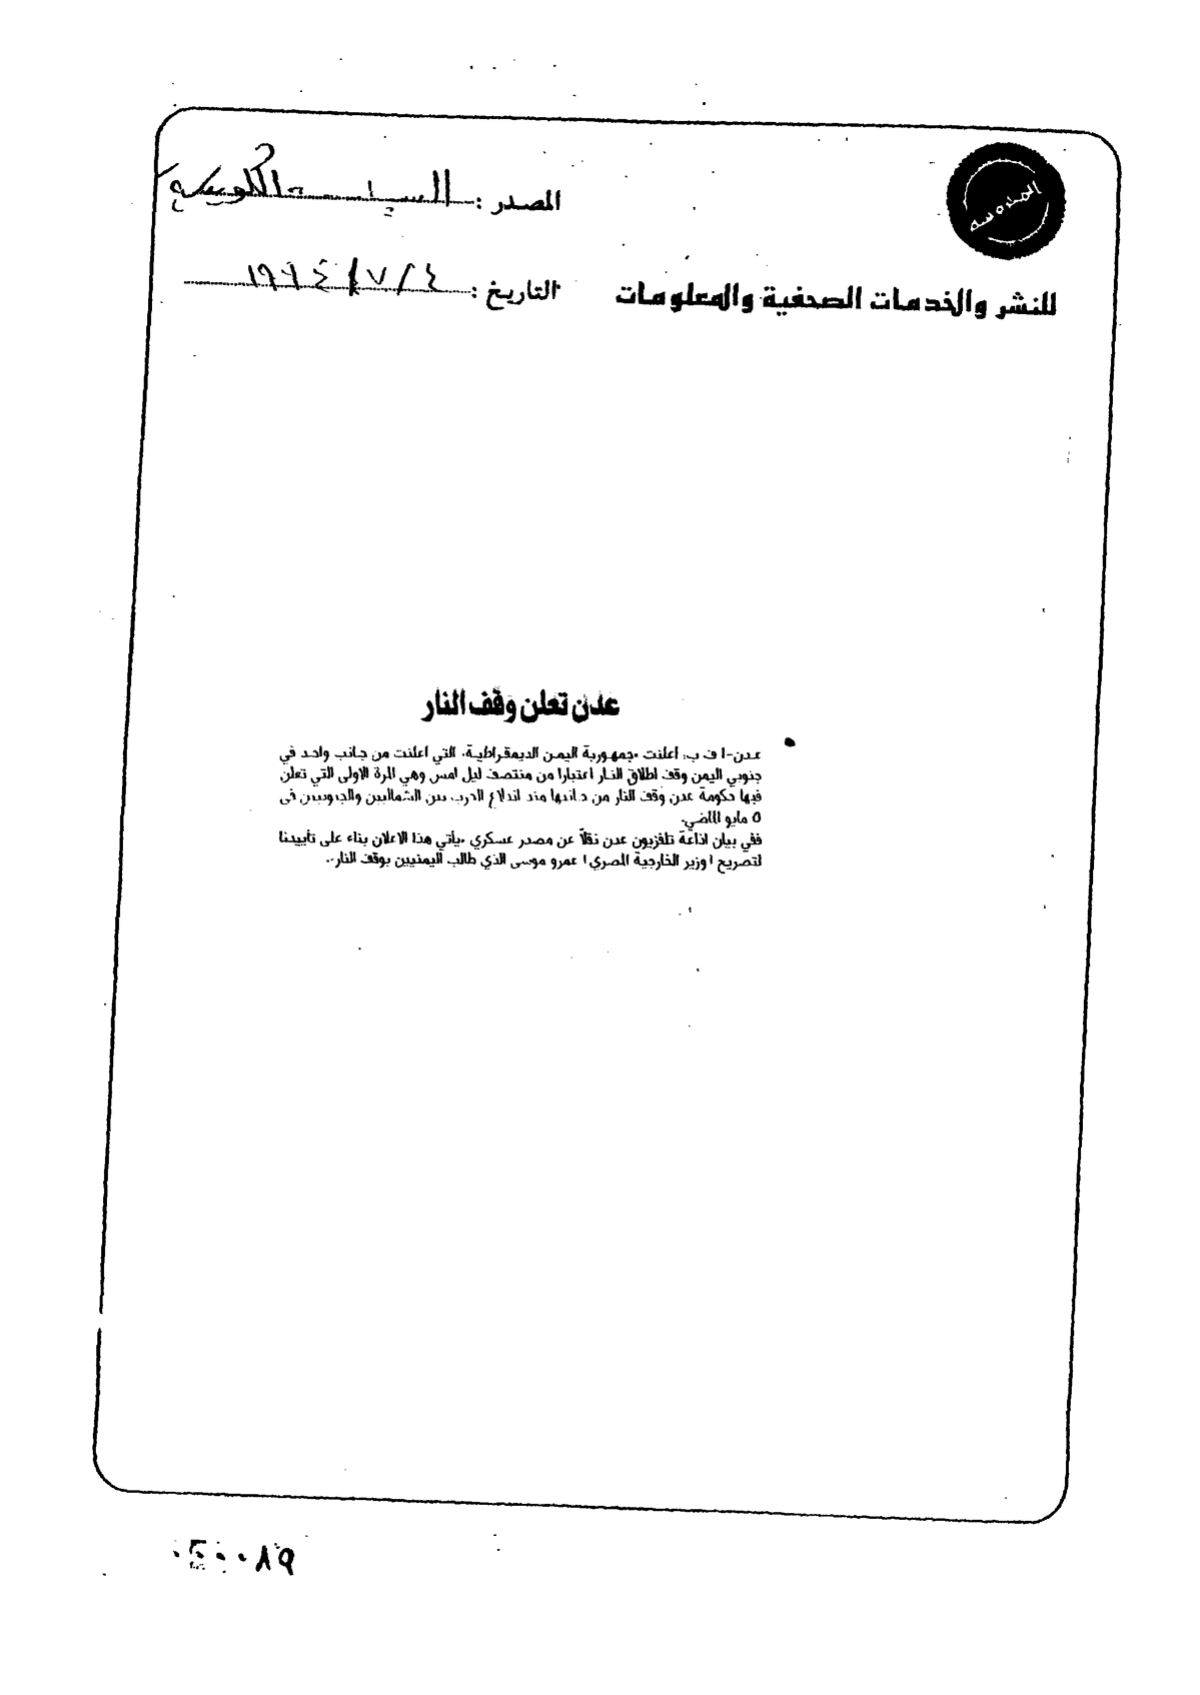 المصدر : السياسة الكويتية
التاريخ : ٤ / ٧ / ١٩٩٤
للنشر والخدمات الصحفية والمعلومات
عدن تعلن وقف النار
● عدن-ا ف ب: اعلنت «جمهورية اليمن الديمقراطية» التي اعلنت من جانب واحد في
جنوبي اليمن وقف اطلاق النار اعتبارا من منتصف ليل امس وهي المرة الاولى التي تعلن
فيها حكومة عدن وقف النار من جانبها منذ اندلاع الحرب بين الشماليين والجنوبيين في
٥ مايو الماضي.
ففي بيان اذاعة تلفزيون عدن نقلاً عن مصدر عسكري «يأتي هذا الاعلان بناء على تأييدنا
لتصريح (وزير الخارجية المصري) عمرو موسى الذي طالب اليمنيين بوقف النار».